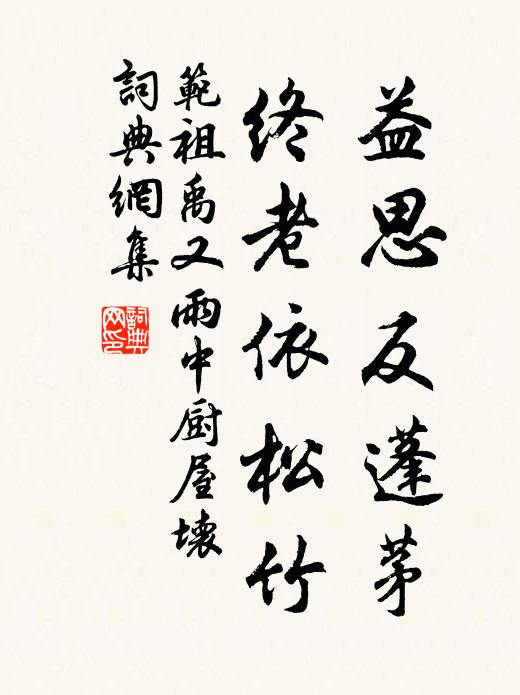 益思反蓬茅
終老依松竹
範祖禹又雨中厨屋壞
詞典網集
詞典网印